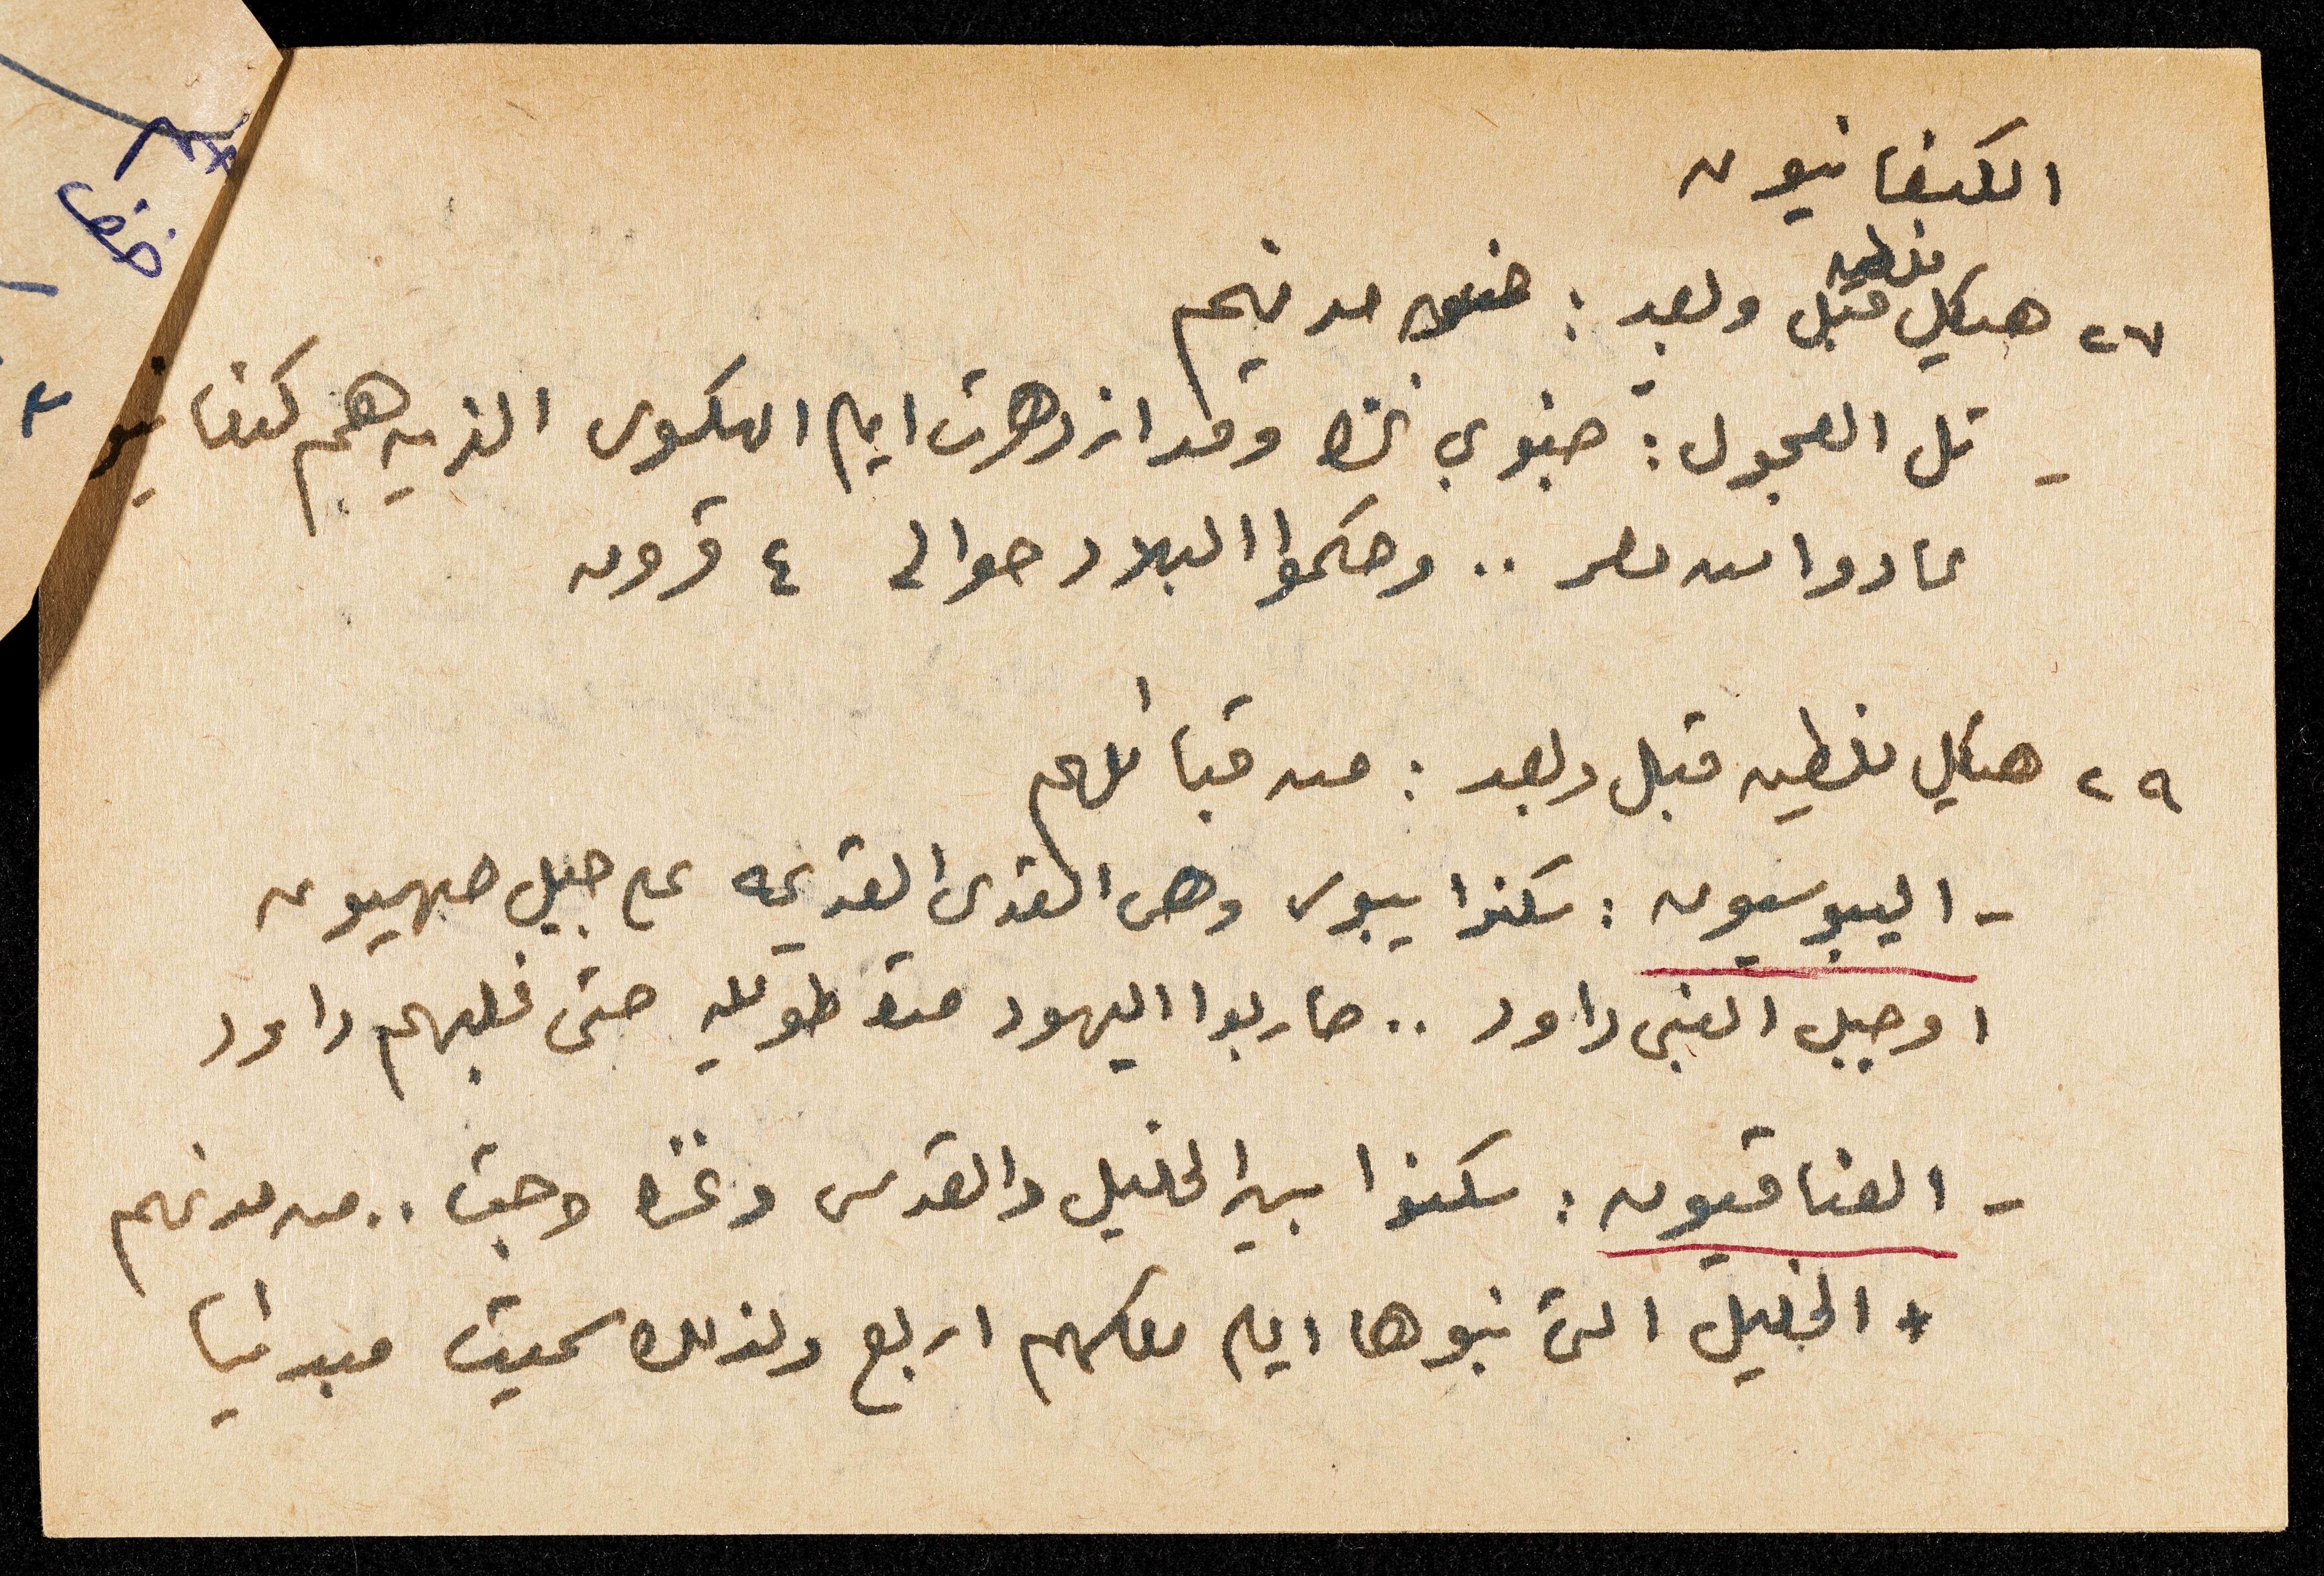 الكنعانيون
٢٧ هيكل فلسطين قبل وبعد : من مدنهم
- تل العجول : جنوبي غزه وقد ازدهرت ايام الهكسوس الذين هم كنعانيو
عادوا من مصر .. وحكموا البلاد حوالي ٤ قرون
٢٩ هيكل فلسطين قبل وبعد : من قبائلهم
- اليبوسيون : سكنوا يبوس وهي القدس القديمه على جبل صهيون
او جبل النبي داود .. حاربوا اليهود مدة طويله حتى غلبهم داود
- العناقيون : سكنوا بين الخليل والقدس وغزه وجت .. من مدنهم
+ الخليل التي بنوها ايام ملكهم اربع ولذلك سميت مبدئيا